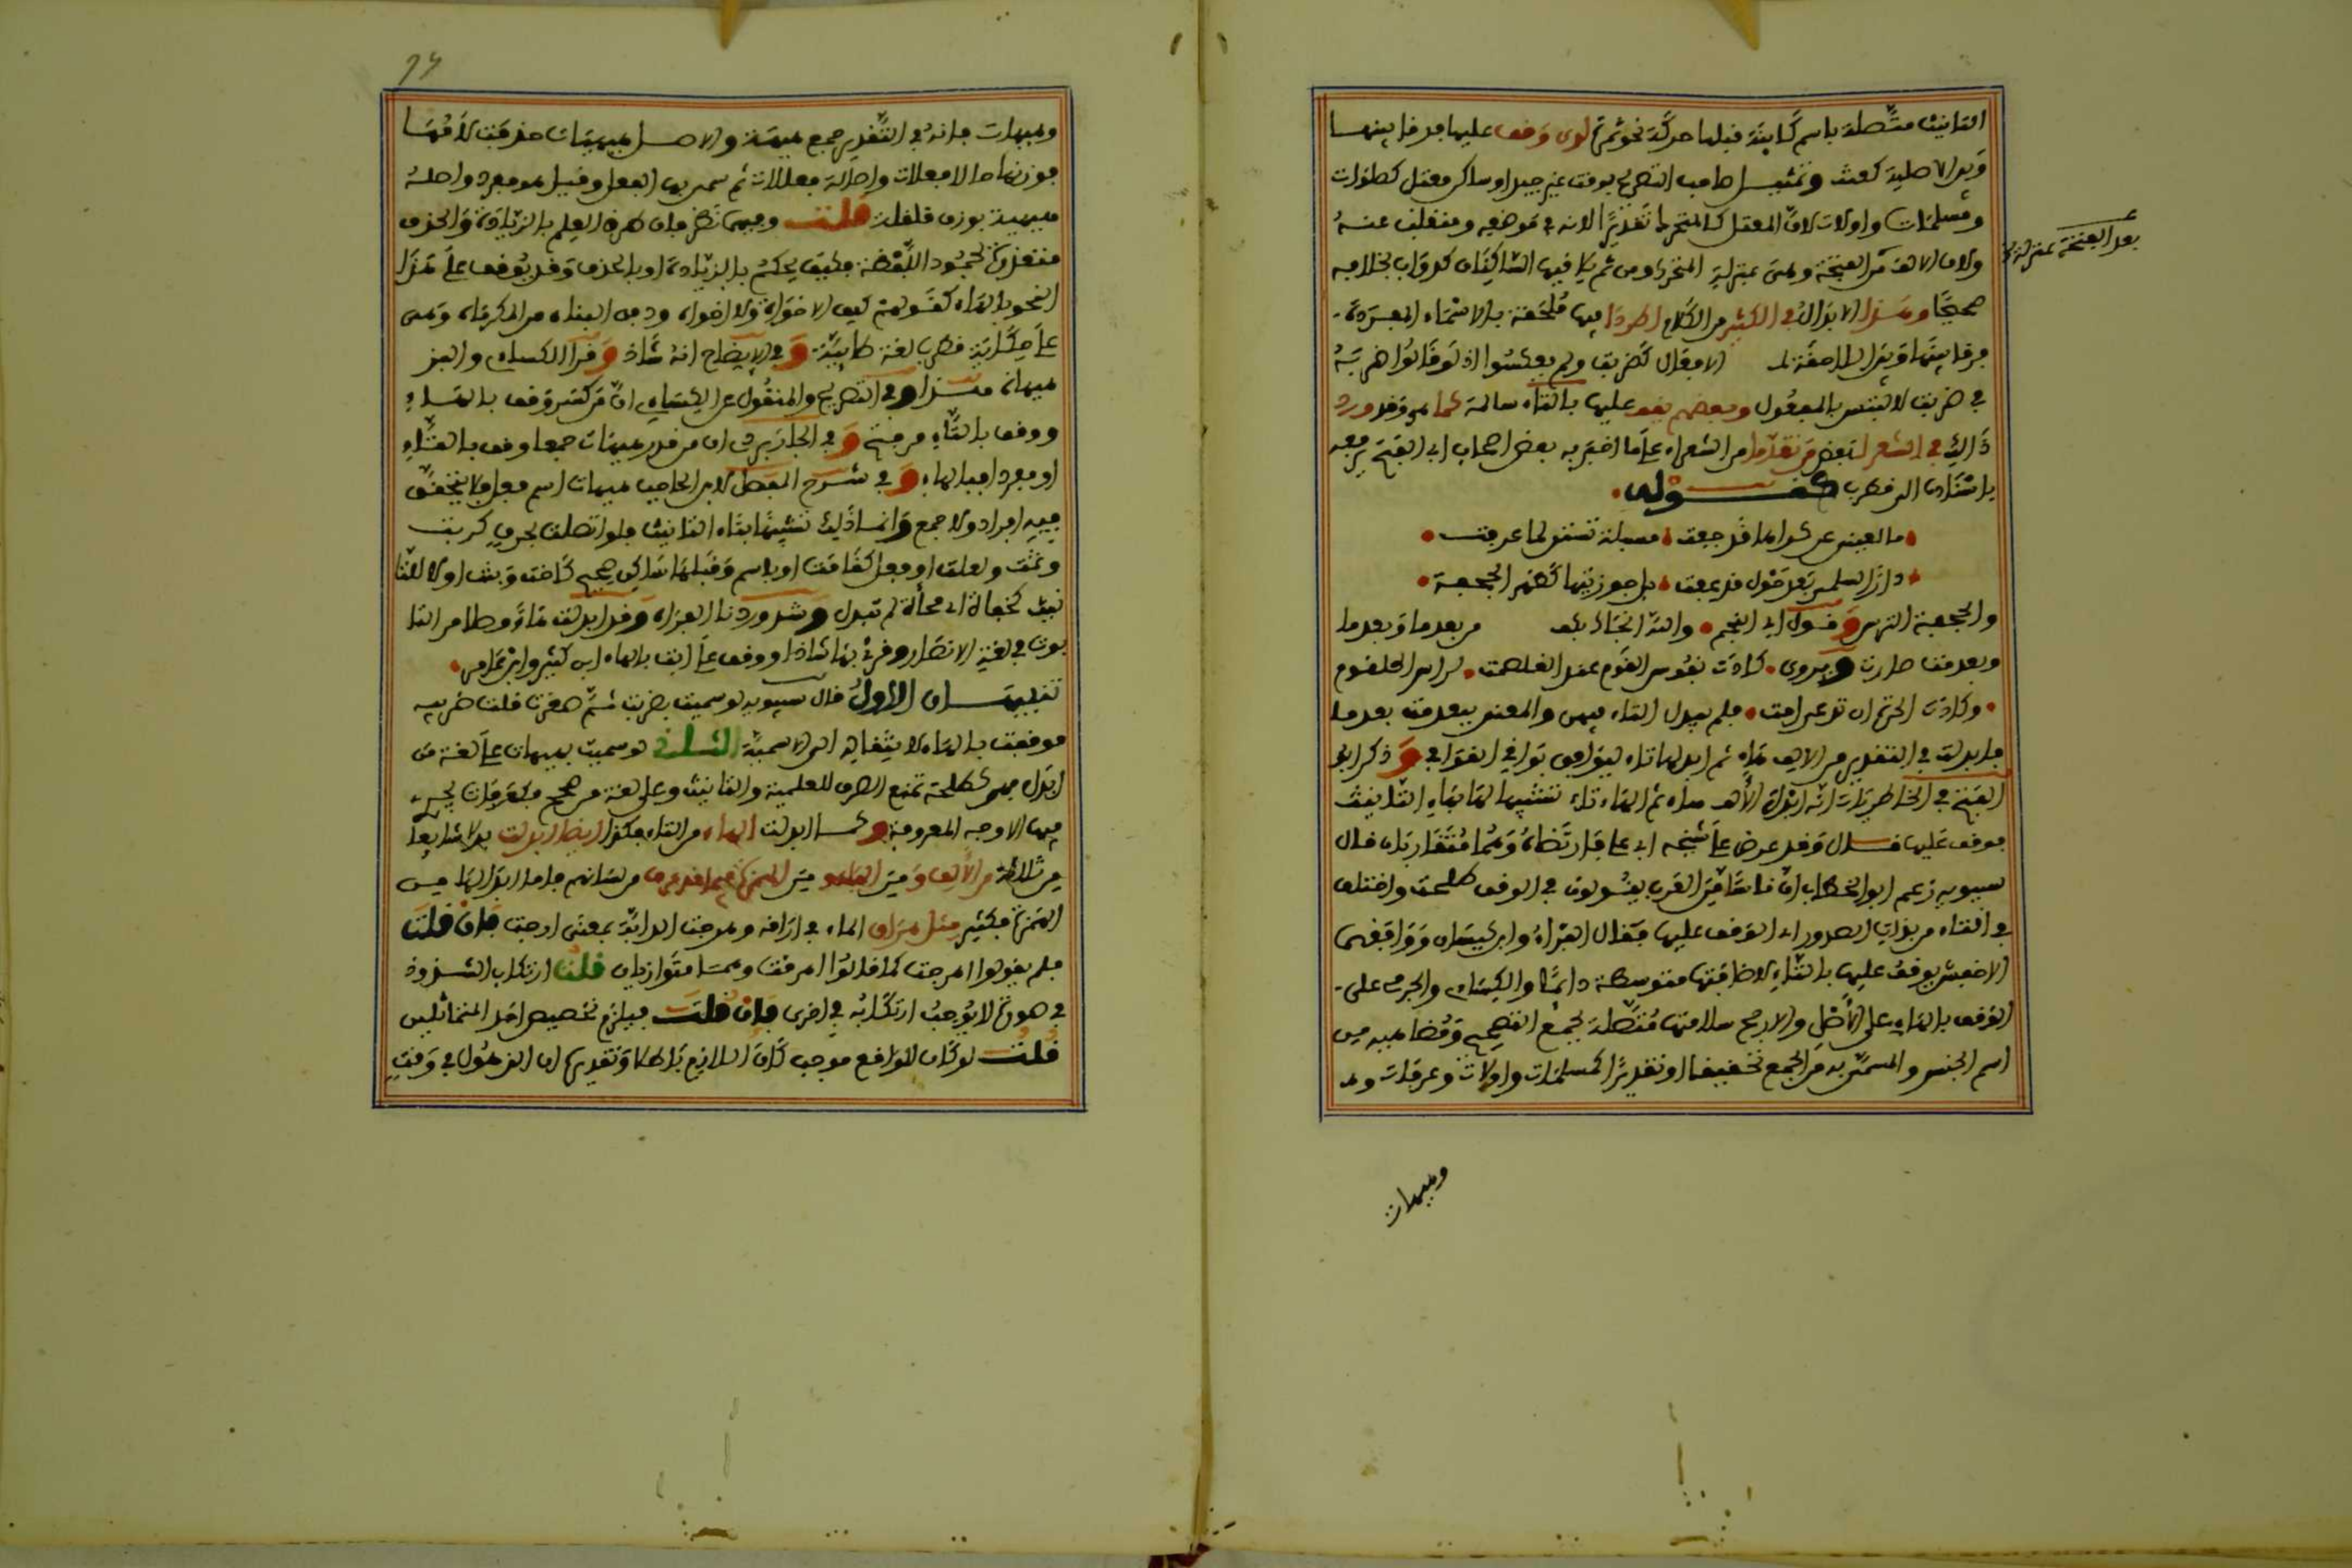 التانيث متصلة باسم كاينة قبلها حركة نحو ثمرة لدى وقف عليها فرقا بينها
وبين الاصلية كعنت وتمثيل صاحب التصريح بوقت غير جيد او ساكن معتل كصلوات
ومسلمات واولات لان المعتل كالمتحرك تقديرا لانه في موضعه ومنقلب عنه
ولان الالف من الفتحة وهي بمنزلة المتحرك ومن ثم يلاقيها الساكنان كدواب بخلافه
صحيحا وهذا الابدال في الكثير من الكلام اطردا فيها ملحقة بالاسماء المفردة
فرقا بينها وبين اللاحقة لـ الافعال كضربت ولم يعكسوا اذ لو قالوا ضربه
في ضربت لالتبس بالمفعول وبعضهم يقف عليها بالتاء سالمة كما هي وقد ورد
ذاك في الشعر لبعض من تقدما من الشعراء على ما اخبر به بعض اصحاب ابي الفتح يرفعه
باسناده الى قطرب كقوله
ما لعيني عن كراها قد جفت مسبلة تستن لما عرفت
دارا لسلمى بعد حول قد عفت بل جوز تيهاء كظهر الحجفة
والحجفة الترس وقول ابي النجم والله انجاك بكف من بعدما وبعدما
وبعدمت صارت ويروى كادت نفوس القوم عند الغلصمت لراس الحلقوم
وكادت الحرة ان تدعى امت فلم يبدل التاء فيهن والمعنى ببعدمت بعدما
فابدلت في التقدير من الالف هاء ثم ابدلها تاء ليوافق بواقي القوافي وذكر ابو
الفتح في الخاطريات انه ابدل الالف هاء ثم الهاء تاء تشبيها لها بهاء التانيث
فوقف عليها قال وقد عرض على شيخه ابي علي فارتضاه وهما متقاربان قال
سيبويه زعم ابو الخطاب ان ناسا من العرب يقولون في الوقف طلحت واختلف
في التاء من ذات الصدور ابى الوقف عليها فقال الفراء وابن كيسان ووافقهما
الاخفش يوقف عليها بالتاء لاضافتها متوسطة دائما والكسائي والجرمي على
الوقف بالهاء على الاصل والارجح سلامتها متصلة بجمع التصحيح ومضاهيه من
اسم الجنس والمسمى به من الجمع تحقيقا او تقديرا كمسلمات واولات وعرفات وهـ
بعد الفتحة بمنزلة
وهيهات
وهيهات فانه في التقدير جمع هيهة والاصل هيهيات حذفت لامها
فوزنها حالا فعلات واصالة فعللات ثم سمي بها الفعل وقيل هو مفرد واصله
هيهية بوزن قلقلة قلت وفيهما نظر فان طريق العلم بالزيادة والحذف
متعذرة لجمود اللفظة فكيف يحكم بالزيادة او بالحذف وقد يوقف على هذا
النحو بالهاء كقولهم كيف الاخواه والاخواه ودفن البناه من المكرماه وهي
على حكاية قطرب لغة طائية وفي الايضاح انه شاذ وقرا الكسائي والبزي
هيهاه هذا وفي التصريح والمنقول عن الكسائي ان من كسر وقف بالهاء
ووقف بالتاء من فتح وفي الجاربردي ان من قدر هيهات جمعا وقف بالتاء
او مفردا فبالهاء وفي شرح المفصل لابن الحاجب هيهات اسم فعل فلا يتحقق
فيه افراد ولا جمع وانما ذلك تشبيها بتاء التانيث فلو اتصلت بحرف كربت
وثمت ولعلت او فعل كقامت او باسم وقبلها ساكن صحيح كاخت وبنت او لا للتا
نيث كنحاة ابي محاة لم تبدل وشذ وردنا الفراه وقد ابدلت هاء وصلا من التا
بوت في لغة الانصار وقرئ بها شاذا ووقف على ابت بالهاء ابن كثير وابن عامر
تنبيهـان الاول قال سيبويه لو سميت بضربت ثم صغرت قلت ضريبه
فوقفت بالهاء لانتقاله الى الاسمية الثـاني لو سميت بهيهات على لغة من
ابدل فهي كطلحة تمنع الصرف للعلمية والتانيث وعلى لغة من صحح فكعرفات يجري
فيها الاوجه المعروفة وكما ابدلت الهاء من التاء هكذا ايضا ابدلت بدلا شايعا
من ثلاثة من الالف ومن الياء ومن الهمزة فيما قد عرف من لسانهم فاما ابدالها من
الهمزة فكثير مثل هراق الماء في اراقه وهرحت الدابة بمعنى ارحت فان قلت
فلم يقولوا اهرحت كما قالوا اهرقت وهما متوازيان قلت ارتكاب الشذوذ
في صورة لا يوجب ارتكابه في اخرى فان قلت فيلزم تخصيص احد المتماثلين
قلت لو كان للواضع موجب كان اللازم باطلا وتقديره ان الذهول في وقت